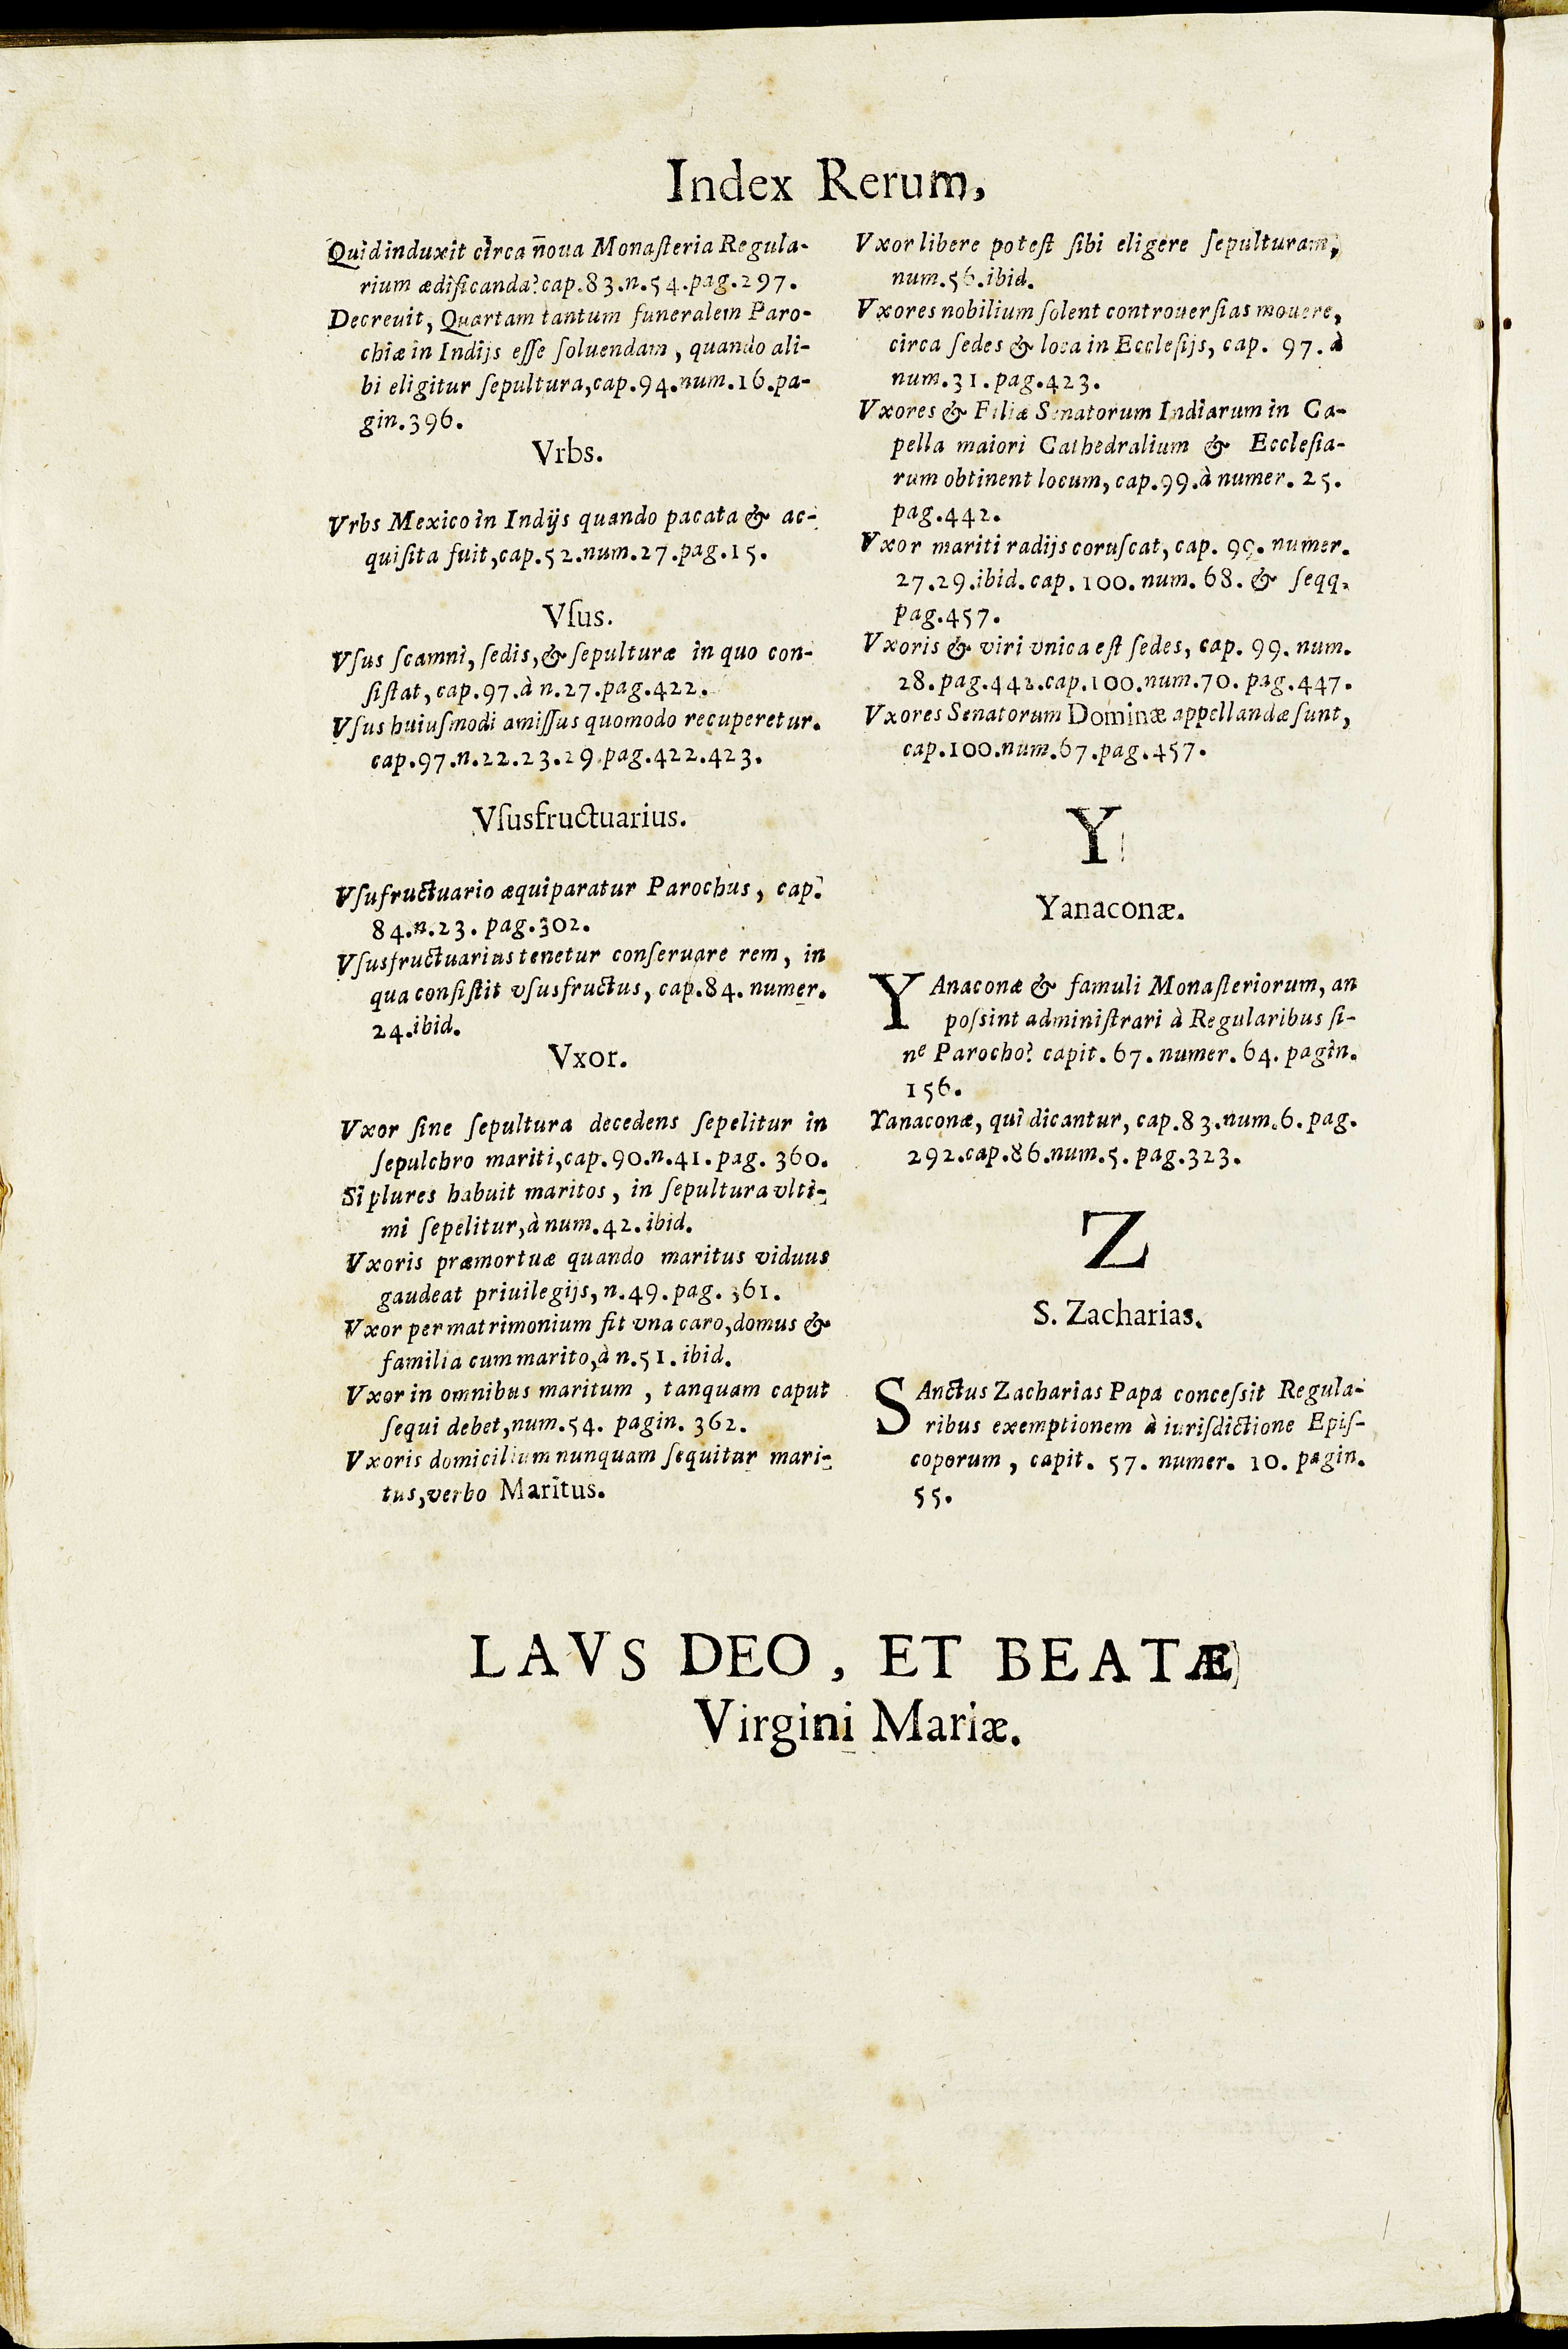 Index Rerum,
Quid induxit circa noua Monaſteria Regula-
rium ædificanda? cap.83.n.54.pag.297.
Decreuit, Quartam tantum funeralem Paro-
chiæ in Indijs eſſe ſoluendam, quando ali-
bi eligitur ſepultura,cap.94.num.16.pa-
gin.396.
Vrbs.
Vrbs Mexico in Indijs quando pacata & ac-
quiſita fuit,cap.52.num.27.pag.15.
Vſus.
Vſus ſcamni, ſedis,& ſepulturæ in quo con-
ſiſtat, cap.97.à n.27.pag.422.
Vſus huiuſmodi amiſſus quomodo recuperetur.
cap.97.n.22.23.29.pag.422.423.
Vſusfructuarius.
Vſufructuario æquiparatur Parochus, cap.
84.n.23. pag.302.
Vſusfructuarius tenetur conſeruare rem, in
qua conſiſtit vſusfructus, cap.84. numer.
24.ibid.
Vxor.
Vxor ſine ſepultura decedens ſepelitur in
ſepulchro mariti,cap.90.n.41.pag. 360.
Si plures habuit maritos, in ſepultura vlti-
mi ſepelitur,à num.42.ibid.
Vxoris præmortuæ quando maritus viduus
gaudeat priuilegijs, n.49.pag. 361.
Vxor per matrimonium fit vna caro,domus &
familia cum marito,à n.51.ibid.
Vxor in omnibus maritum, tanquam caput
ſequi debet,num.54. pagin. 362.
Vxoris domicilium nunquam ſequitur mari-
tus,verbo Maritus.
Vxor libere poteſt ſibi eligere ſepulturam,
num.56.ibid.
Vxores nobilium ſolent controuerſias mouere,
circa ſedes & loca in Eccleſijs, cap. 97. à
num.31.pag.423.
Vxores & Filiæ Senatorum Indiarum in Ca-
pella maiori Cathedralium & Eccleſia-
rum obtinent locum, cap.99.à numer. 25.
pag.442.
Vxor mariti radijs coruſcat, cap. 99. numer.
27.29.ibid. cap. 100. num. 68. & ſeqq.
pag.457.
Vxoris & viri vnica eſt ſedes, cap. 99. num.
28.pag.442.cap.100.num.70. pag.447.
Vxores Senatorum Dominæ appellandæ ſunt,
cap.100.num.67.pag.457.
Y
Yanaconæ.
YAnaconæ & famuli Monaſteriorum, an
poſsint adminiſtrari à Regularibus ſi-
ne Parocho? capit. 67. numer. 64. pagin.
156.
Yanaconæ, qui dicantur, cap.83.num.6. pag.
292.cap.86.num.5. pag.323.
Z
S. Zacharias.
SAnctus Zacharias Papa conceſsit Regula-
ribus exemptionem à iuriſdictione Epiſ-
coporum, capit. 57. numer. 10. pagin.
55.
LAVS DEO, ET BEATÆ
Virgini Mariæ.